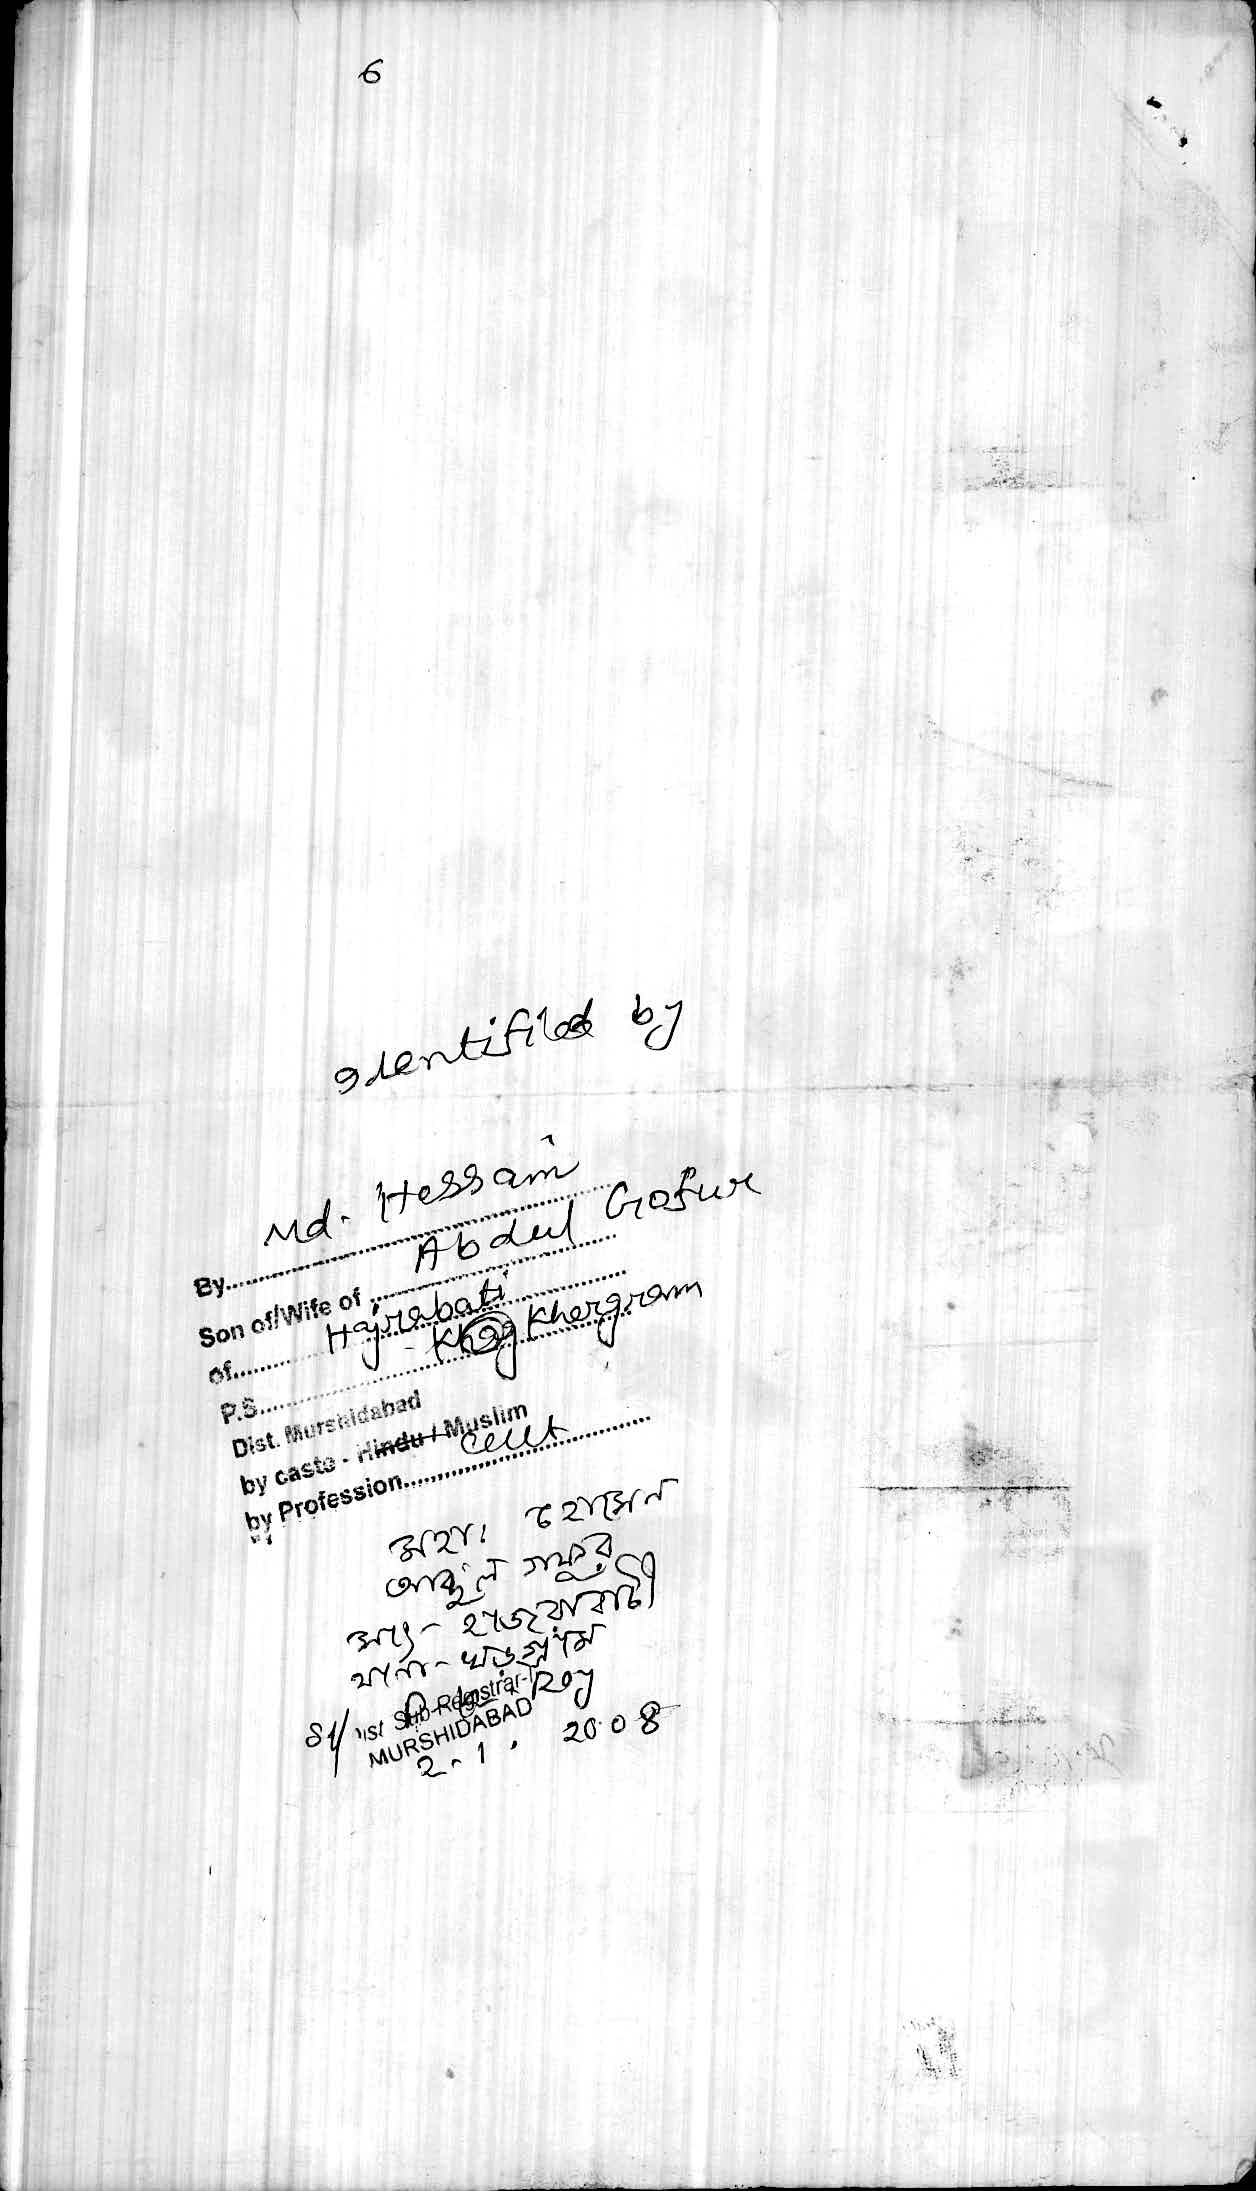 6
Identified by
By Md. Hossain
Son of/Wife of Abdul Gofur
of Hajrabati
P.S. Khargram
Dist. Murshidabad
by caste - Hindu / Muslim
by Profession Cult
মহাঃ হোসেন
আব্দুল গফুর
সাং- হাজরাবাটী
থানা- খড়গ্রাম
Sd/ Roy
Dist Sub-Registrar-
MURSHIDABAD
2.1.2008